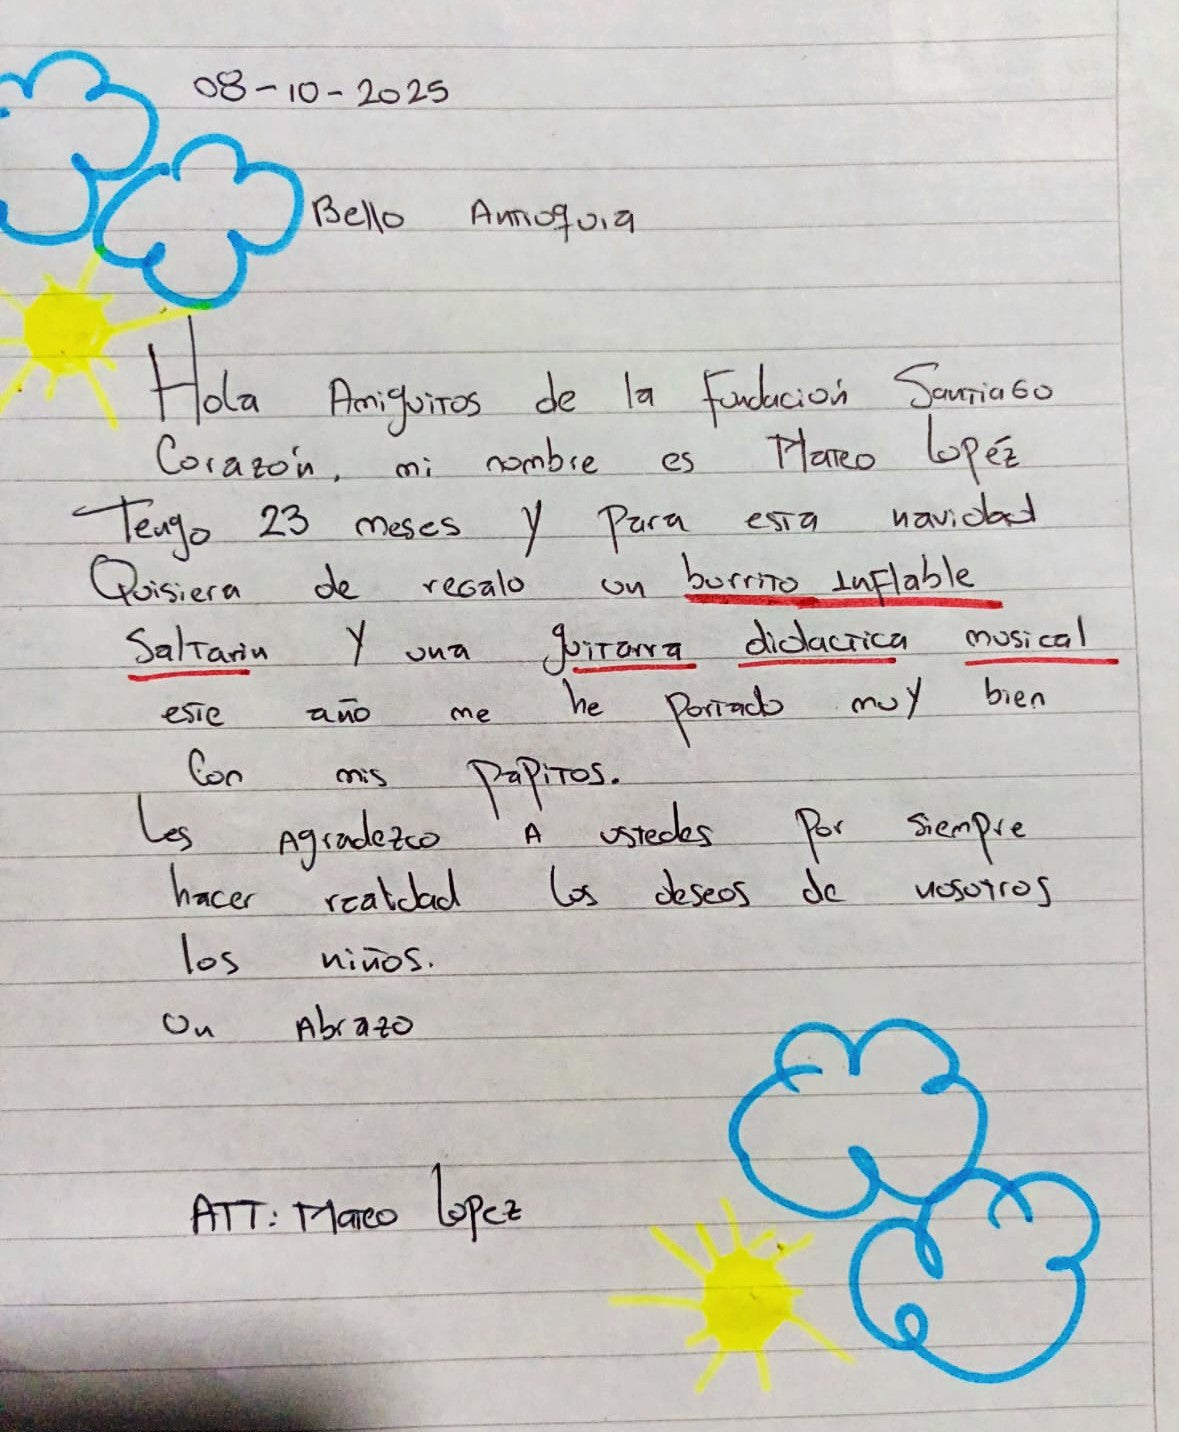 08-10-2025
Bello Antioquia
Hola Amiguitos de la Fundación Santiago
Corazón, mi nombre es Mateo Lopéz
Tengo 23 meses y para esta navidad
Quisiera de regalo un burrito inflable
Saltarin y una guitarra didactica musical
este año me he portado muy bien
Con mis papitos.
Les Agradezco A ustedes por siempre
hacer realidad los deseos de nosotros
los niños.
Un Abrazo
ATT: Mateo Lopez